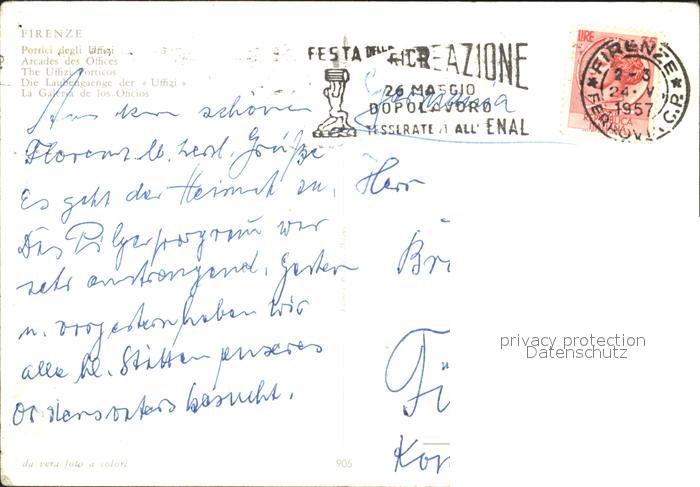 FIRENZE
Portici degli Uffizi
Arcades des Offices
The Uffizi Porticos
Die Laubengaenge der « Uffizi »
La Galeria de los Oficios
FESTA DELLA RICREAZIONE
26 MAGGIO
DOPOLAVORO
TESSERATEVI ALL' ENAL
LIRE 35
FIRENZE
2-3
24 V
1957
FERROVIA C.R.
Germania
Aus dem schönen
Florenz Grüße
Es geht der Heimat zu.
Das Pilgerprogramm war
sehr anstrengend, gestern
u. vorgestern haben wir
alle hl. Stätten unseres
Ordensvaters besucht.
Herr
Br
Fü
Kor
privacy protection
Datenschutz
da vera foto a colori
905